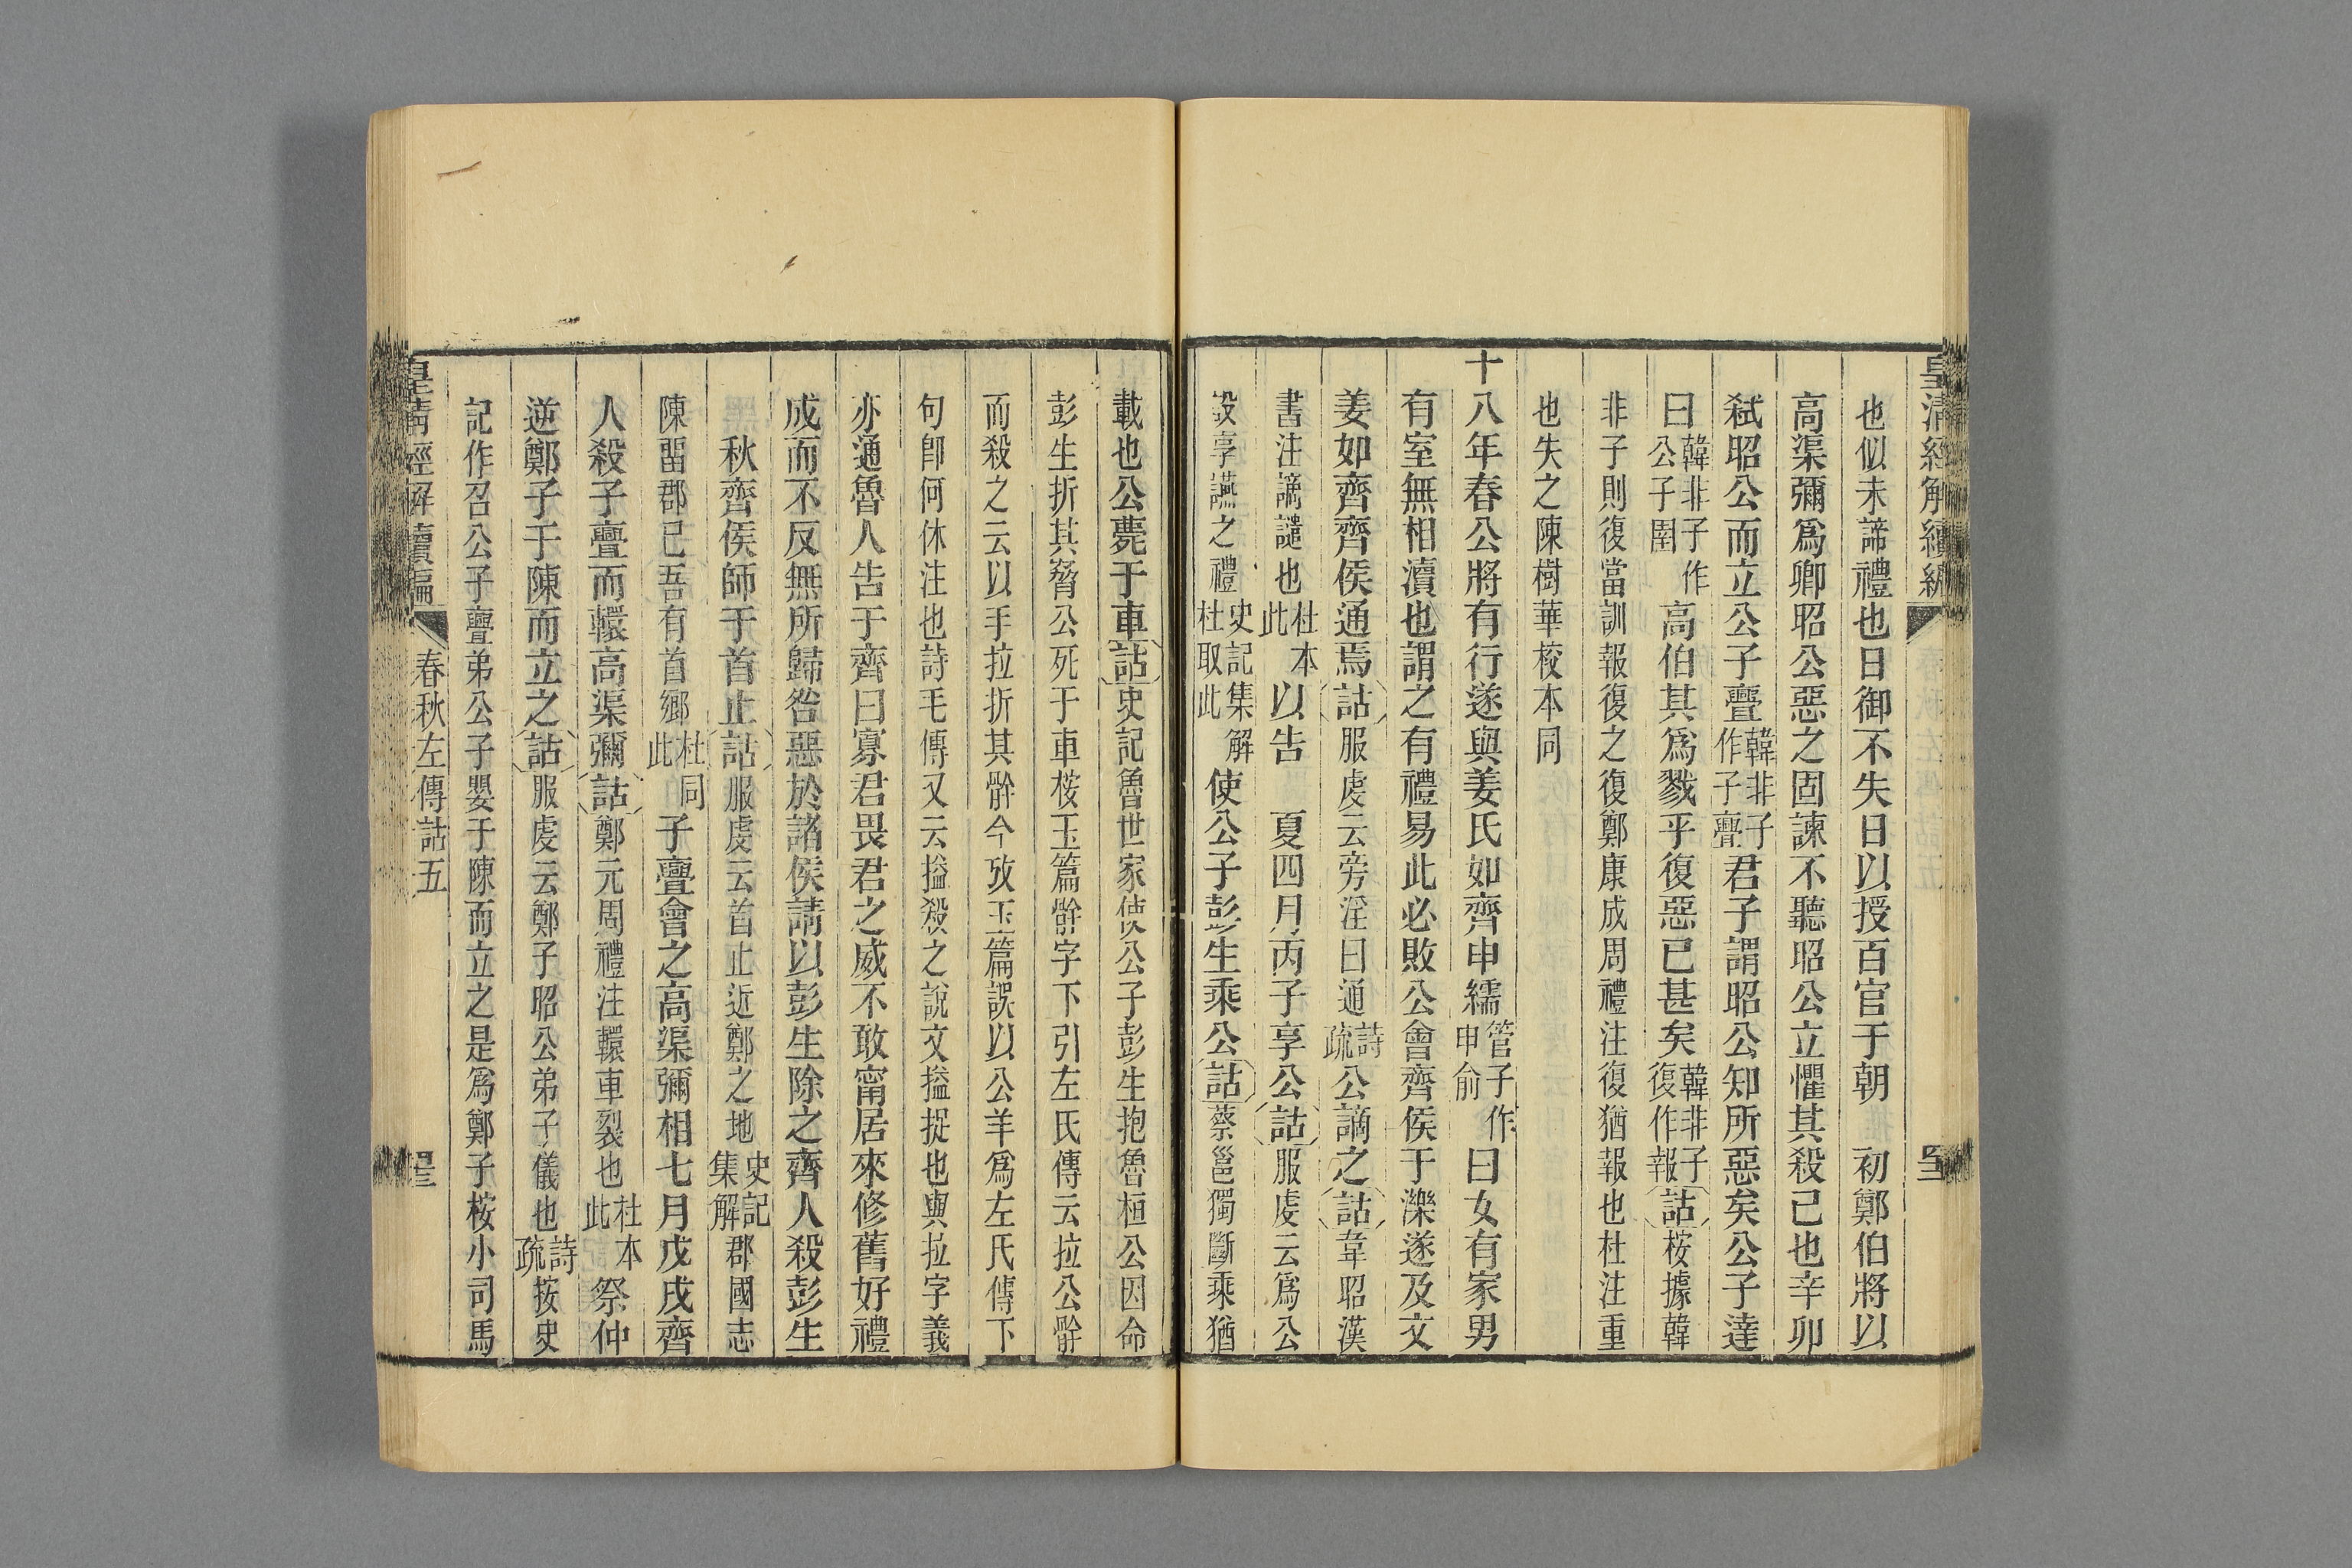 皇清經解續編
也似未諦禮也日御不失日以授百官于朝　初鄭伯將以
高渠彌爲卿昭公惡之固諫不聽昭公立懼其殺已也辛卯
弒昭公而立公子亹韓非子作子亹君子謂昭公知所惡矣公子達
曰韓非子作公子圉高伯其爲戮乎復惡已甚矣韓非子復作報詁桉據韓
非子則復當訓報復之復鄭康成周禮注復猶報也杜注重
也失之陳樹華校本同
十八年春公將有行遂與姜氏如齊申繻管子作申俞曰女有家男
有室無相瀆也謂之有禮易此必敗公會齊侯于濼遂及文
姜如齊齊侯通焉詁服虔云旁淫曰通詩疏公謫之詁韋昭漢
書注謫譴也杜本此以告　夏四月丙子享公詁服虔云爲公
設享讌之禮史記集解杜取此使公子彭生乘公詁蔡邕獨斷乘猶
載也公薨于車詁史記魯世家使公子彭生抱魯桓公因命
彭生折其脅公死于車桉玉篇骿字下引左氏傳云拉公骿
而殺之云以手拉折其骿今攷玉篇誤以公羊爲左氏傳下
句卽何休注也詩毛傳又云搚殺之說文搚捉也與拉字義
亦通魯人告于齊曰寡君畏君之威不敢甯居來修舊好禮
成而不反無所歸咎惡於諸侯請以彭生除之齊人殺彭生
秋齊侯師于首止詁服虔云首止近鄭之地史記集解郡國志
陳畱郡已吾有首鄉杜同此子亹會之高渠彌相七月戊戌齊
人殺子亹而轘高渠彌詁鄭元周禮注轘車裂也杜本此祭仲
逆鄭子于陳而立之詁服虔云鄭子昭公弟子儀也詩疏按史
記作召公子亹弟公子嬰于陳而立之是爲鄭子桉小司馬
皇淸經解續編
春秋左傳詁五